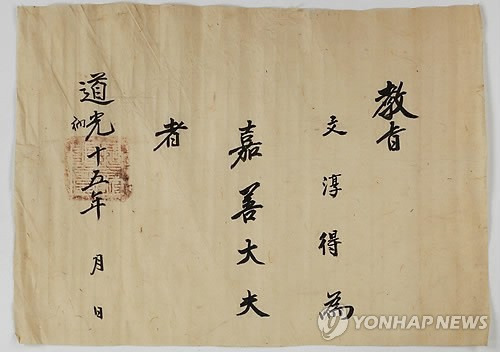 教旨
文淳得爲
嘉善大夫
者
道光十五年 月 日
YONHAP NEWS